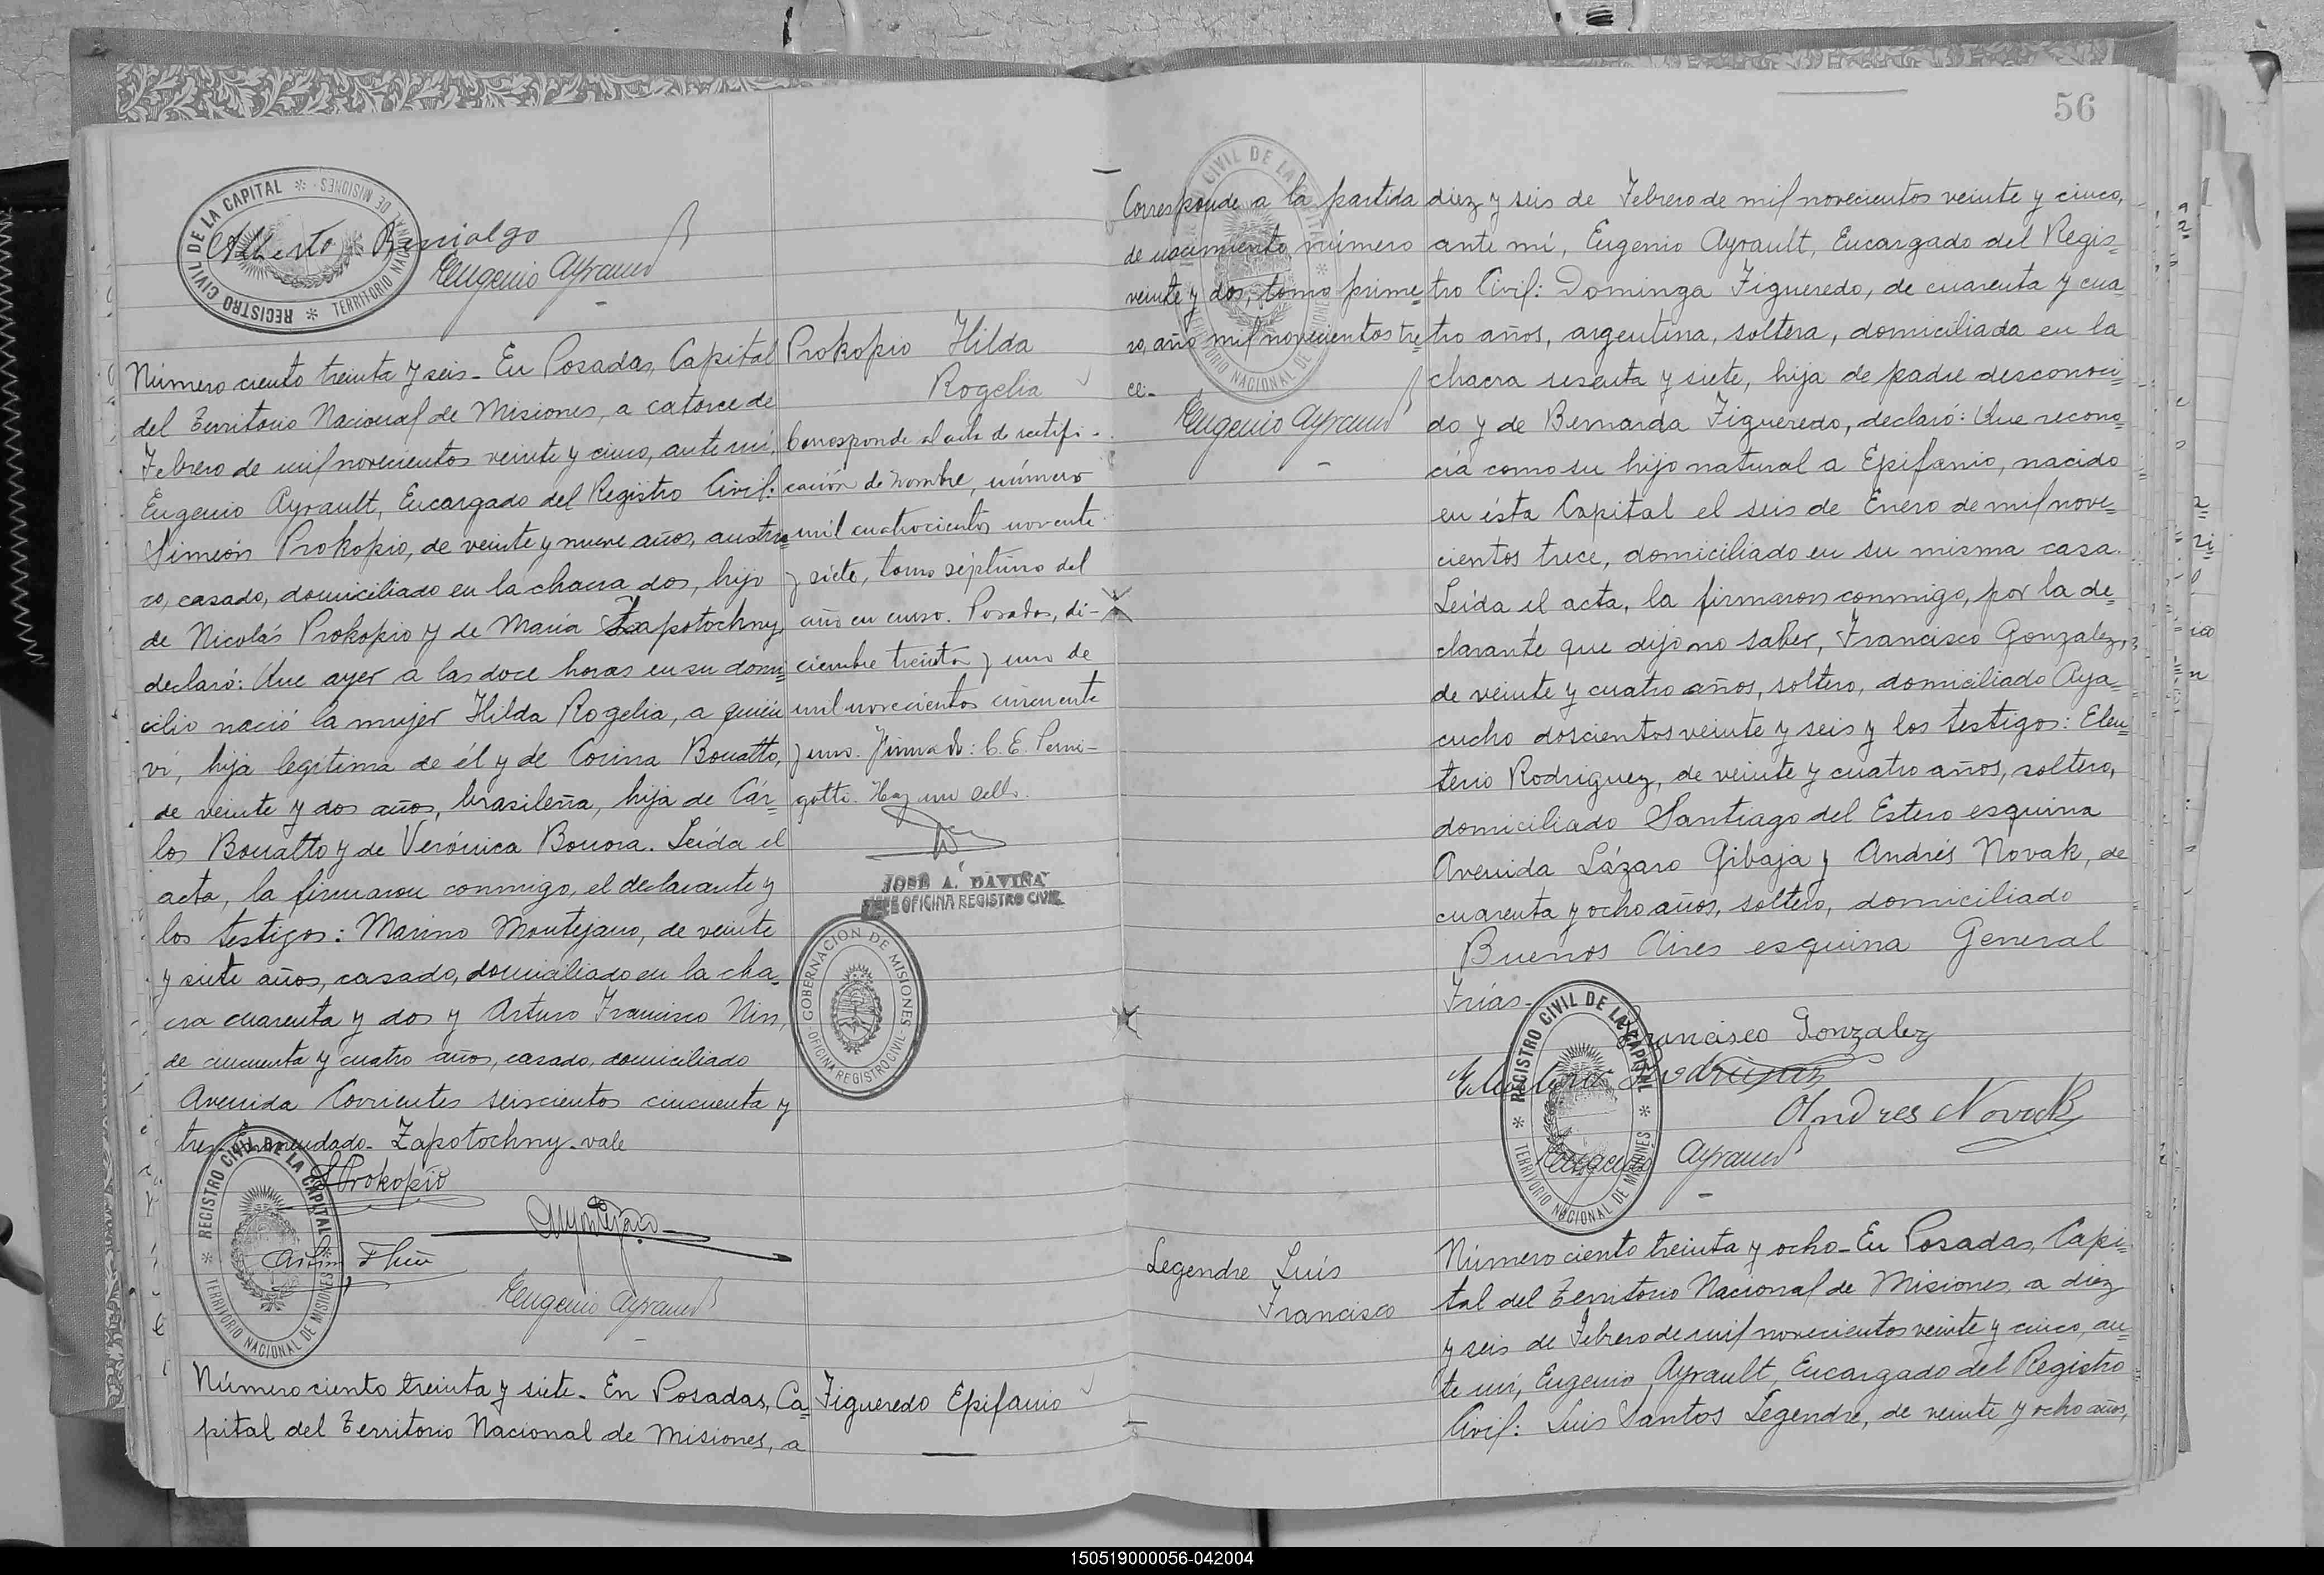 REGISTRO CIVIL DE LA CAPITAL * TERRITORIO NACIONAL DE MISIONES *
Alberto
Eugenio Ayrault
Número ciento treinta y seis - En Posadas, Capital
del Territorio Nacional de Misiones, a catorce de
Febrero de mil novecientos veinte y cinco, ante mí,
Eugenio Ayrault, Encargado del Registro Civil:
Simeón Prokopio, de veinte y nueve años, austria=
co, casado, domiciliado en la chacra dos, hijo
de Nicolás Prokopio y de María Zapotochny,
declaró: Que ayer a las doce horas en su domi=
cilio nació la mujer Hilda Rogelia, a quien
ví, hija legítima de él y de Corina Boualto,
de veinte y dos años, brasileña, hija de Cár=
los Boualto y de Verónica Bonora. Leída el
acta, la firmaron conmigo, el declarante y
los testigos: Marino Montejano, de veinte
y siete años, casado, domiciliado en la cha=
cra cuarenta y dos y Arturo Francisco
de cincuenta y cuatro años, casado, domiciliado
Avenida Corrientes seiscientos cincuenta y
tres. Enmendado - Zapotochny - vale
SProkopio
REGISTRO CIVIL DE LA CAPITAL * TERRITORIO NACIONAL DE MISIONES *
Eugenio Ayrault
Número ciento treinta y siete - En Posadas, Ca=
pital del Territorio Nacional de Misiones, a
Prokopio Hilda
Rogelia
Corresponde al acta de rectifi-
cación de nombre, número
mil cuatrocientos noventa
y siete, tomo séptimo del
año en curso. Posadas, di-
ciembre treinta y uno de
mil novecientos cincuenta
y uno. Firmado: C. E. Perni-
gotti. Hay un sello.
JOSE A. DAVIÑA
JEFE OFICINA REGISTRO CIVIL
GOBERNACION DE MISIONES - OFICINA REGISTRO CIVIL
Figueredo Epifanio
56
Corresponde a la partida
de nacimiento, número
veinte y dos, tomo prime=
ro, año mil novecientos tre=
ce-
Eugenio Ayrault
REGISTRO CIVIL DE LA CAPITAL * TERRITORIO NACIONAL DE MISIONES *
diez y seis de Febrero de mil novecientos veinte y cinco,
ante mí, Eugenio Ayrault, Encargado del Regis=
tro Civil: Dominga Figueredo, de cuarenta y cua=
tro años, argentina, soltera, domiciliada en la
chacra sesenta y siete, hija de padre desconoci=
do y de Bernarda Figueredo, declaró: Que recono=
cía como su hijo natural a Epifanio, nacido
en ésta Capital el seis de Enero de mil nove=
cientos trece, domiciliado en su misma casa.
Leída el acta, la firmaron conmigo, por la de=
clarante que dijo no saber, Francisco Gonzalez,
de veinte y cuatro años, soltero, domiciliado Aya=
cucho doscientos veinte y seis y los testigos: Eleu=
terio Rodriguez, de veinte y cuatro años, soltero,
domiciliado Santiago del Estero esquina
Avenida Lázaro Gibaja y Andrés Novak, de
cuarenta y ocho años, soltero, domiciliado
Buenos Aires esquina General
Frías-
Francisco Gonzalez
Eleuterio Rodriguez
Andres Novak
Eugenio Ayrault
REGISTRO CIVIL DE LA CAPITAL * TERRITORIO NACIONAL DE MISIONES *
Legendre Luis
Francisco
Número ciento treinta y ocho - En Posadas, Capi=
tal del Territorio Nacional de Misiones, a diez
y seis de Febrero de mil novecientos veinte y cinco, an=
te mí, Eugenio Ayrault, Encargado del Registro
Civil: Luis Santos Legendre, de veinte y ocho años,
150519000056-042004